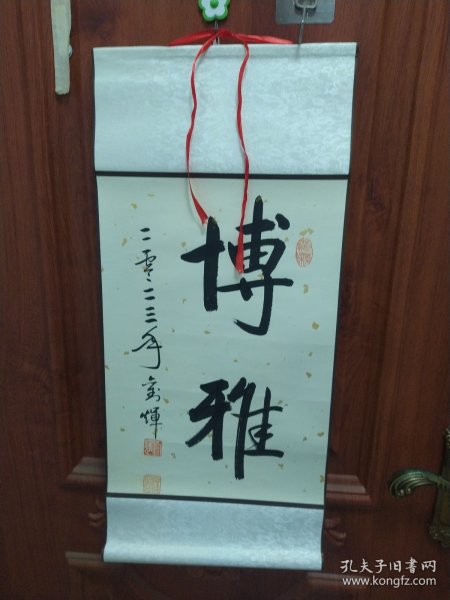 博雅
二零二三年
孔夫子旧书网
www.kongfz.com